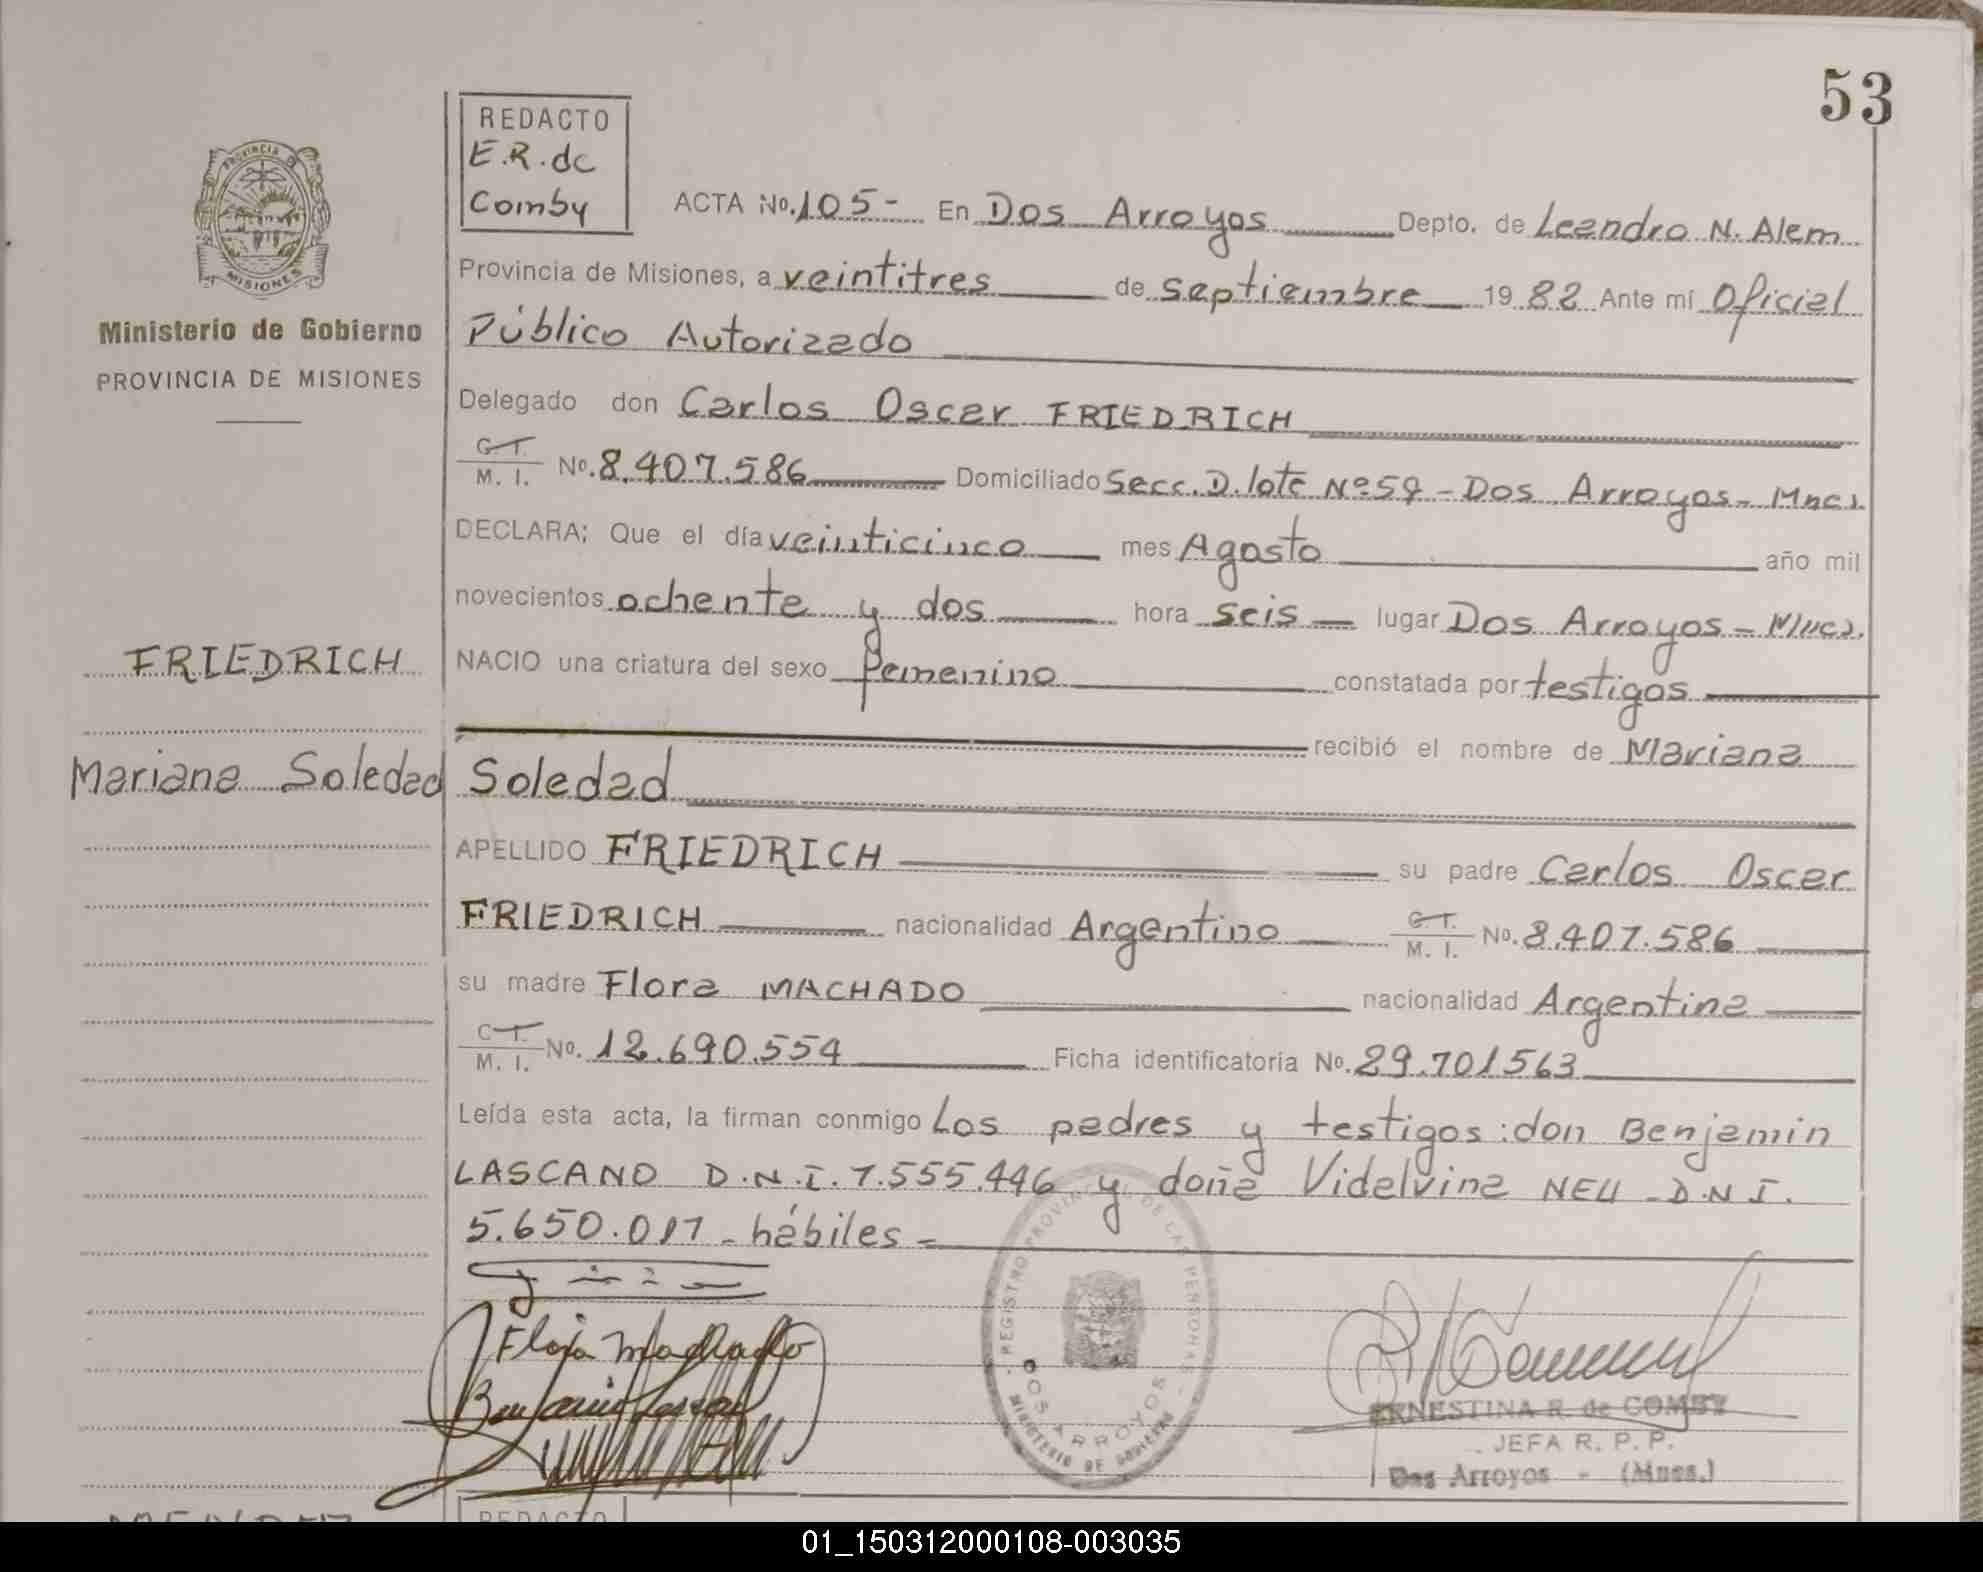 53
REDACTO
E.R. de
Comby
PROVINCIA DE
MISIONES
Ministerio de Gobierno
PROVINCIA DE MISIONES
ACTA No. 105- En Dos Arroyos Depto. de Leandro N. Alem
Provincia de Misiones, a veintitres de septiembre 1982 Ante mí Oficial
Público Autorizado
Delegado don Carlos Oscar FRIEDRICH
C. T. M. I. No. 8.407.586 Domiciliado Secc. D. lote Nº 59 - Dos Arroyos - Mnes.
DECLARA: Que el día veinticinco mes Agosto año mil
novecientos ochenta y dos hora seis lugar Dos Arroyos - Mnes.
FRIEDRICH
NACIO una criatura del sexo femenino constatada por testigos
recibió el nombre de Mariana
Mariana Soledad
Soledad
APELLIDO FRIEDRICH su padre Carlos Oscar
FRIEDRICH nacionalidad Argentino C. T. M. I. No. 8.407.586
su madre Flora MACHADO nacionalidad Argentina
C. T. M. I. No. 12.690.554 Ficha identificatoria No. 29.701563
Leída esta acta, la firman conmigo Los padres y testigos: don Benjamin
LASCANO D.N.I. 7.555.446 y doña Videlvina NEU - D.N.I.
5.650.017 - hábiles -
Flora Machado
Benjamin Lascano
REGISTRO PROVINCIAL DE LAS PERSONAS
DOS ARROYOS
MINISTERIO DE GOBIERNO
ERNESTINA R. de COMBY
JEFA R. P. P.
Dos Arroyos - (Mnes.)
REDACTO
01_150312000108-003035